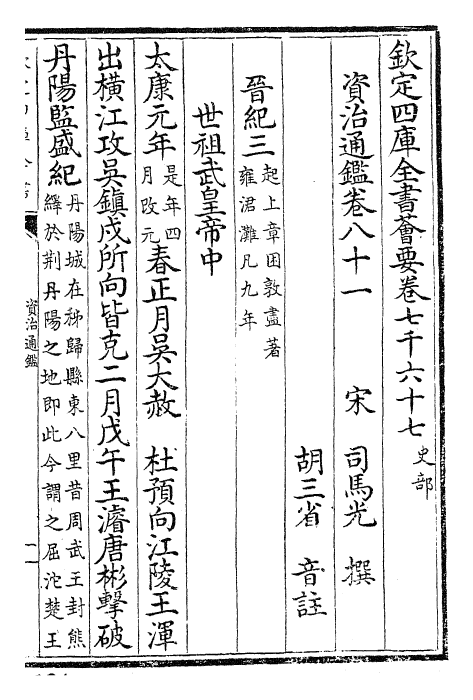 欽定四庫全書薈要卷七千六十七 史部
資治通鑑卷八十一
宋 司馬光 撰
胡三省 音註
晉紀三 起上章困敦盡著雍涒灘凡九年
世祖武皇帝中
太康元年 是年四月改元 春正月吳大赦 杜預向江陵王渾
出橫江攻吳鎮戍所向皆克二月戊午王濬唐彬擊破
丹陽監盛紀 丹陽城在秭歸縣東八里昔周武王封熊繹於荆丹陽之地即此今謂之屈沱楚王
資治通鑑
一